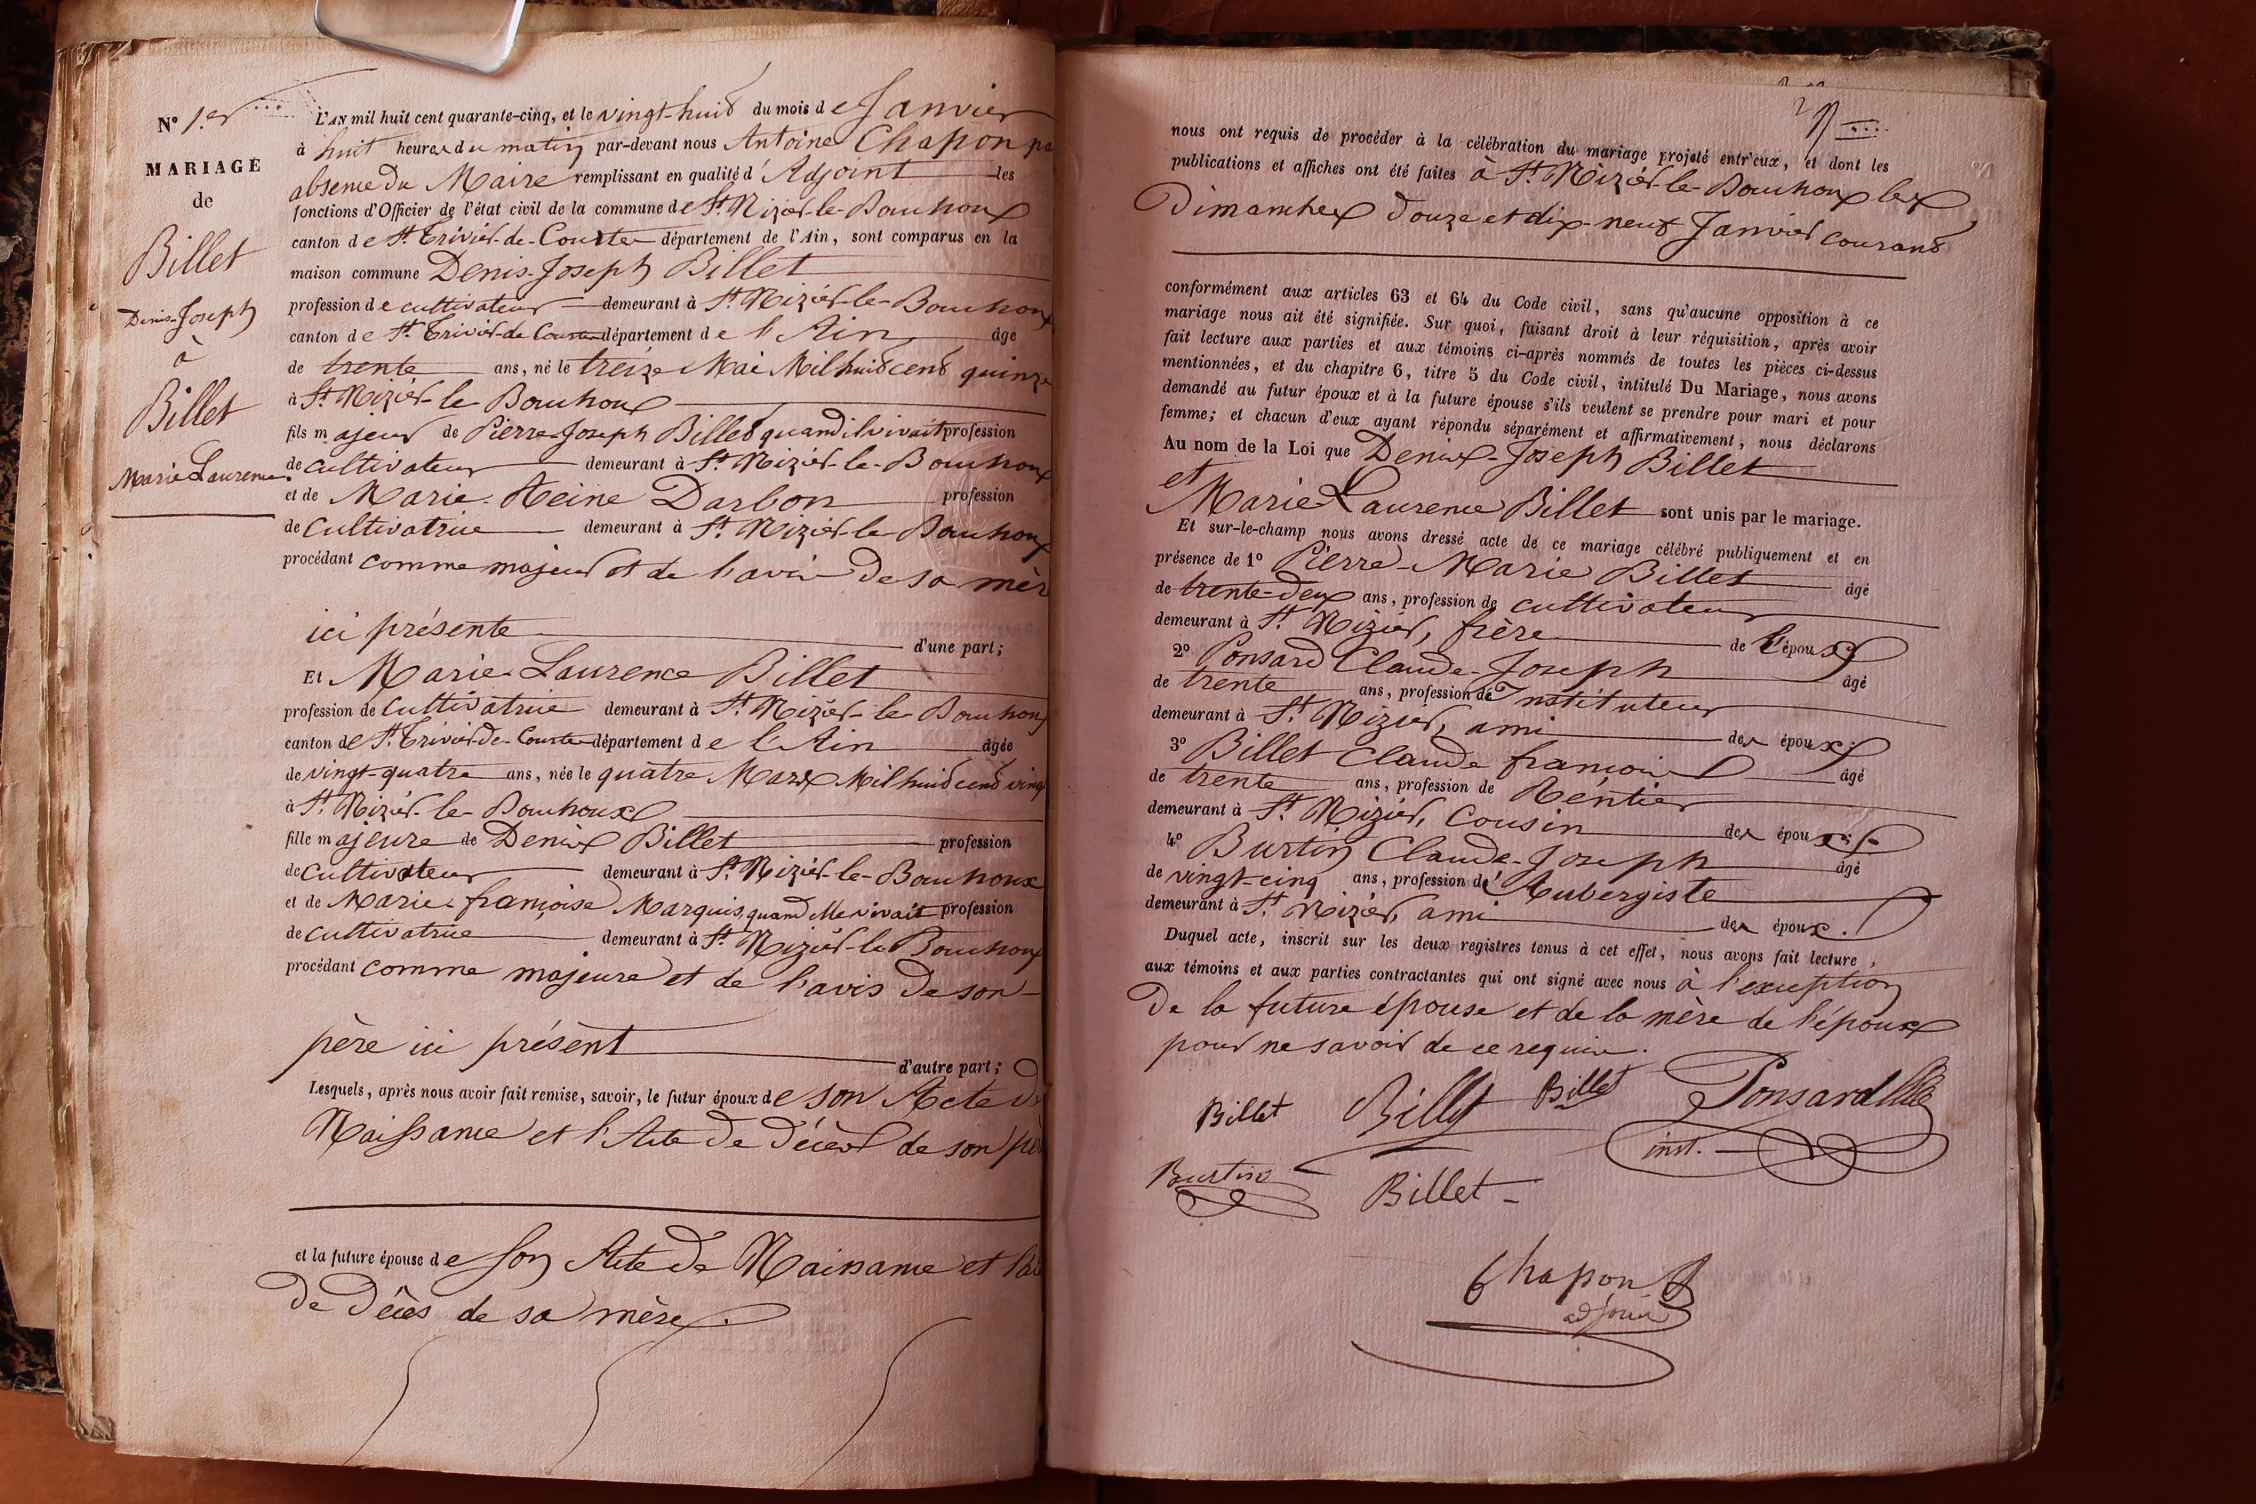 N° 1.er
MARIAGE
de
Billet
Denis-Joseph
à
Billet
Marie Laurence.
L'AN mil huit cent quarante-cinq, et le vingt-huit du mois de Janvier
à huit heures du matin par-devant nous Antoine Chapon
absence du Maire remplissant en qualité d'Adjoint les
fonctions d'Officier de l'état civil de la commune de St Nizier-le-Bouchoux
canton de St Trivier-de-Courtes département de l'Ain, sont comparus en la
maison commune Denis-Joseph Billet
profession de cultivateur demeurant à St Nizier-le-Bouchoux
canton de St Trivier-de Courtes département de l'Ain âgé
de trente ans, né le treize Mai Mil huit cent quinze
à St Nizier-le-Bouchoux
fils majeur de Pierre-Joseph Billet quand il vivait profession
de cultivateur demeurant à St Nizier-le-Bouchoux
et de Marie-Reine Darbon profession
de cultivatrice demeurant à St Nizier-le-Bouchoux
procédant comme majeur et de l'avis de sa mèr
ici présente d'une part;
Et Marie-Laurence Billet
profession de cultivatrice demeurant à St Nizier-le-Bouchoux
canton de St Trivier-de-Courtes département de l'Ain âgée
de vingt-quatre ans, née le quatre Mars Mil huit cent vingt
à St Nizier-le-Bouchoux
fille majeure de Denis Billet profession
de cultivateur demeurant à St Nizier-le-Bouchoux
et de Marie-françoise Marquis, quand elle vivait profession
de cultivatrice demeurant à St Nizier-le-Bouchoux
procédant comme majeure et de l'avis de son
père ici présent d'autre part;
Lesquels, après nous avoir fait remise, savoir, le futur époux de son Acte de
Naissance et l'Acte de décès de son pè
et la future épouse de son Acte de Naissance et
de décès de sa mère.
nous ont requis de procéder à la célébration du mariage projeté entr'eux, et dont les
publications et affiches ont été faites à St Nizier-le-Bouchoux les
Dimanches douze et dix-neuf Janvier courant
conformément aux articles 63 et 64 du Code civil, sans qu'aucune opposition à ce
mariage nous ait été signifiée. Sur quoi, faisant droit à leur réquisition, après avoir
fait lecture aux parties et aux témoins ci-après nommés de toutes les pièces ci-dessus
mentionnées, et du chapitre 6, titre 5 du Code civil, intitulé Du Mariage, nous avons
demandé au futur époux et à la future épouse s'ils veulent se prendre pour mari et pour
femme; et chacun d'eux ayant répondu séparément et affirmativement, nous déclarons
Au nom de la Loi que Denis-Joseph Billet
et
Marie Laurence Billet sont unis par le mariage.
Et sur-le-champ nous avons dressé acte de ce mariage célébré publiquement et en
présence de 1° Pierre-Marie Billet âgé
de trente-deux ans, profession de cultivateur
demeurant à St Nizier, frère de l'époux;
2° Ponsard Claude-Joseph âgé
de trente ans, profession d'Instituteur
demeurant à St Nizier, ami des époux;
3° Billet Claude françois âgé
de trente ans, profession de Réntier
demeurant à St Nizier, cousin des époux;
4° Burtin Claude-Joseph âgé
de vingt-cinq ans, profession d'Aubergiste
demeurant à St Nizier, ami des époux.
Duquel acte, inscrit sur les deux registres tenus à cet effet, nous avons fait lecture,
aux témoins et aux parties contractantes qui ont signé avec nous à l'exception
de la future épouse et de la mère de l'époux
pour ne savoir de ce requis.
Billet Billet Billet Ponsard
inst.
Burtin Billet
Chapon
adjoint